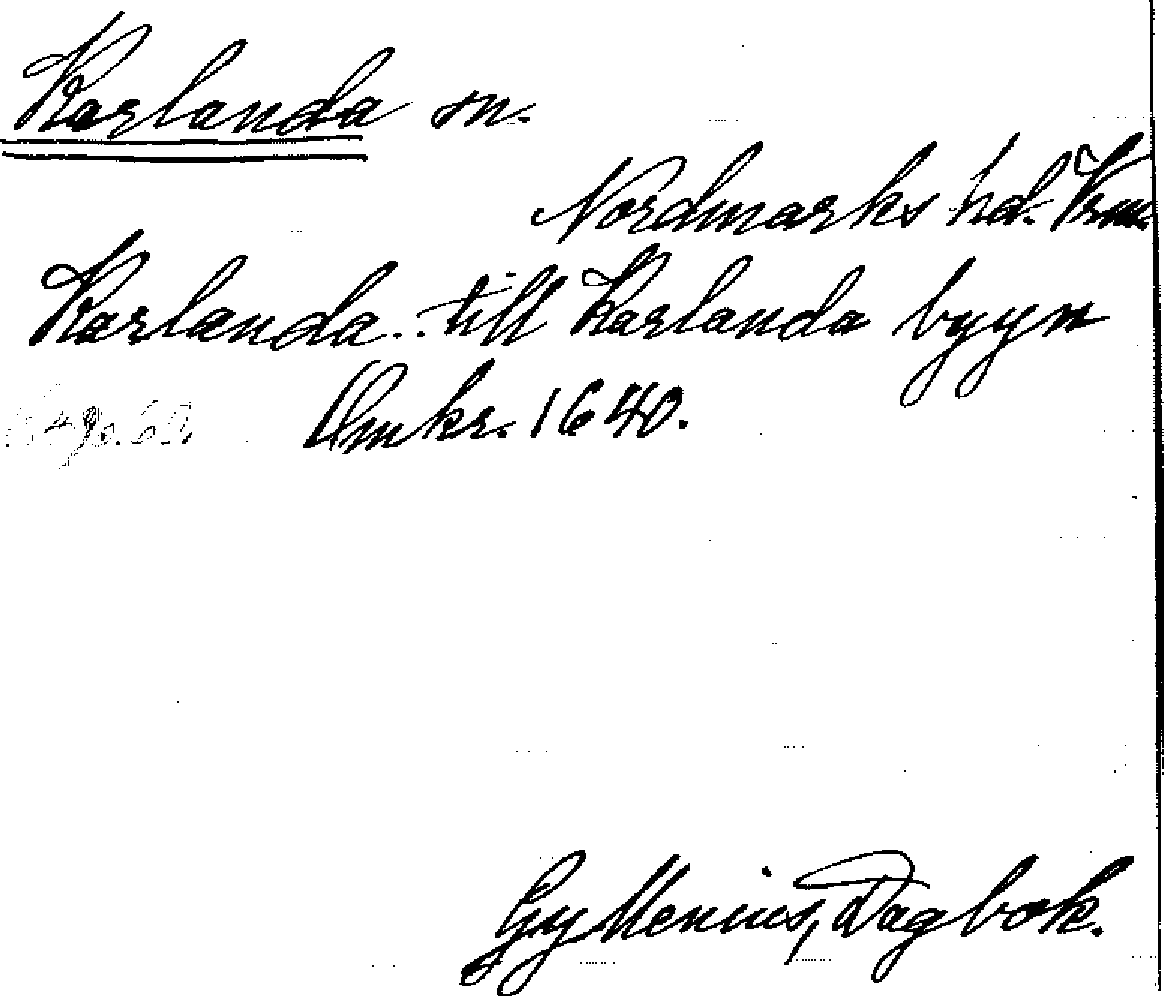 Karlanda sn.
Nordmarks hd. Vrm.
Karlanda.. till Karlanda byyn
Omkr. 1640.
Gyllenius, Dagbok.